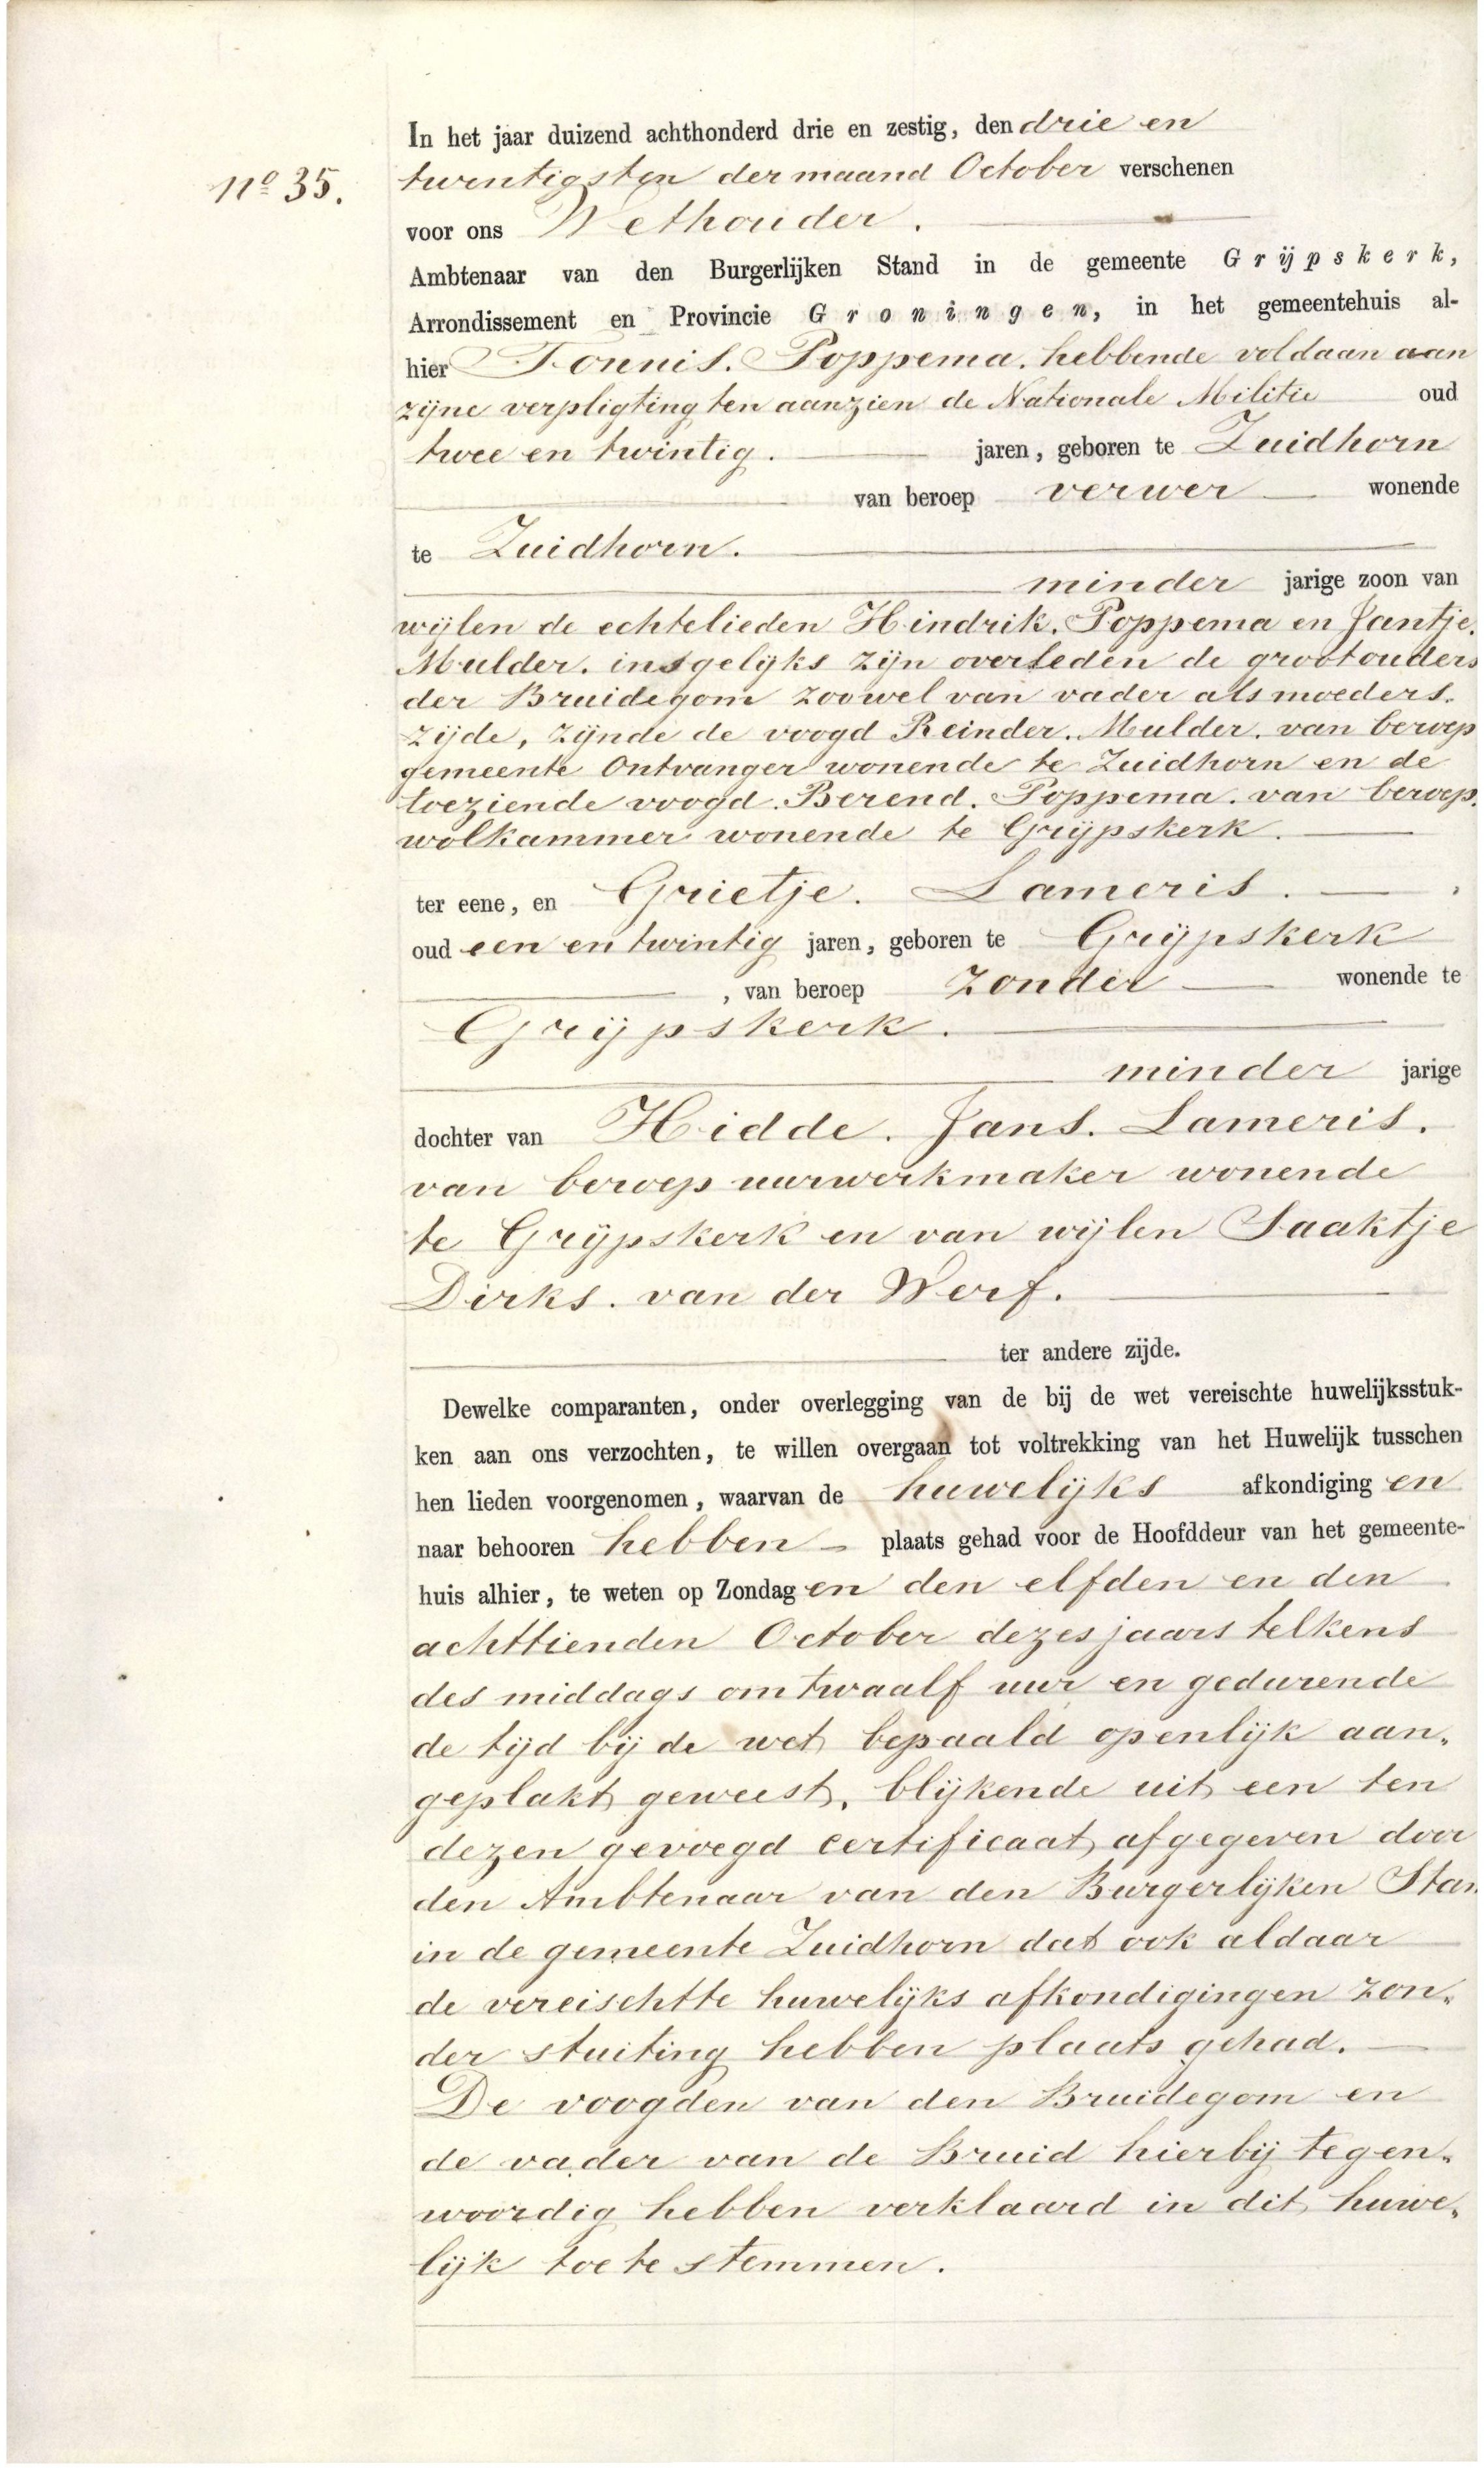 Nº 35.
In het jaar duizend achthonderd drie en zestig, den drie en
twintigsten der maand October verschenen
voor ons Wethouder.
Ambtenaar van den Burgerlijken Stand in de gemeente Grijpskerk,
Arrondissement en Provincie Groningen, in het gemeentehuis al-
hier Tonnis. Poppema. hebbende voldaan aan
zijne verpligting ten aanzien de Nationale Militie oud
twee en twintig. jaren, geboren te Zuidhorn
van beroep verwer wonende
te Zuidhorn.
minder jarige zoon van
wijlen de echtelieden Hindrik. Poppema en Jantje.
Mulder. insgelijks zijn overleden de grootouders
der Bruidegom zoowel van vader als moeders.
zijde, zijnde de voogd Reinder. Mulder. van beroep
gemeente Ontvanger wonende te Zuidhorn en de
toeziende voogd. Berend. Poppema. van beroep.
wolkammer wonende te Grijpskerk.
ter eene, en Grietje. Lameris.
oud een en twintig jaren, geboren te Grijpskerk
, van beroep zonder wonende te
Grijpskerk.
minder jarige
dochter van Hidde. Jans. Lameris.
van beroep uurwerkmaker wonende
te Grijpskerk en van wijlen Saaktje
Dirks. van der Werf.
ter andere zijde.
Dewelke comparanten, onder overlegging van de bij de wet vereischte huwelijksstuk-
ken aan ons verzochten, te willen overgaan tot voltrekking van het Huwelijk tusschen
hen lieden voorgenomen, waarvan de huwelijks afkondiging en
naar behooren hebben plaats gehad voor de Hoofddeur van het gemeente-
huis alhier, te weten op Zondag en den elfden en den
achttienden October dezes jaars telkens
des middags om twaalf uur en gedurende
de tijd bij de wet bepaald openlijk aan-
geplakt geweest, blijkende uit een ten
dezen gevoegd certificaat afgegeven door
den Ambtenaar van den Burgerlijken Stan
in de gemeente Zuidhorn dat ook aldaar
de vereischtte huwelijks afkondigingen zon-
der stuiting hebben plaats gehad.
De voogden van den Bruidegom en
de vader van de Bruid hierbij tegen-
woordig hebben verklaard in dit huwe-
lijk toe te stemmen.